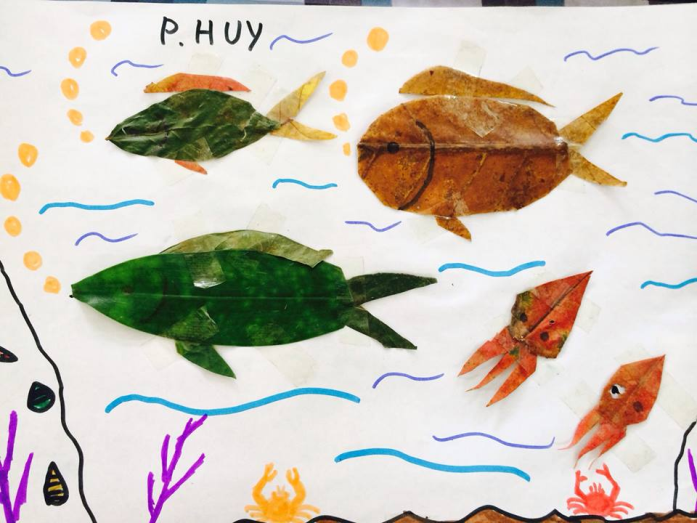 P. HUY